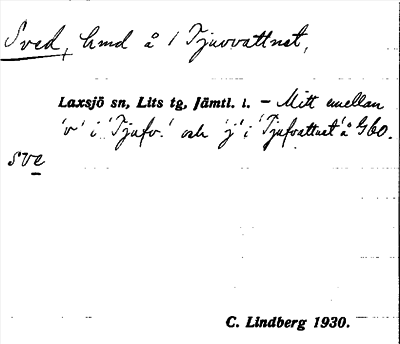 Sved, hmd å 1 Tjuvvattnet,
Laxsjö sn, Lits tg, Jämtl. l. – Mitt emellan
'v' i 'Tjufv.' och 'j' i 'Tjufvattnet' å Gbo.
sve
C. Lindberg 1930.